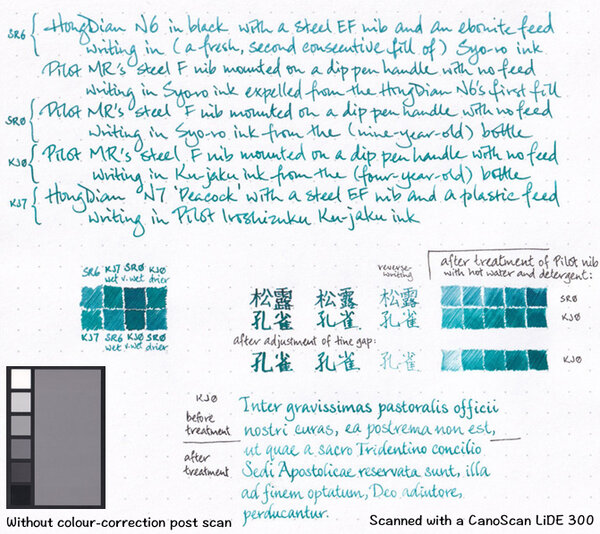 SR6 { HongDian N6 in black with a steel EF nib and an ebonite feed
writing in (a fresh, second consecutive fill of) Syo-ro ink
Pilot MR's steel F nib mounted on a dip pen handle with no feed
writing in Syo-ro ink expelled from the HongDian N6's first fill
SRØ { Pilot MR's steel F nib mounted on a dip pen handle with no feed
writing in Syo-ro ink from the (nine-year-old) bottle
KJØ { Pilot MR's steel F nib mounted on a dip pen handle with no feed
writing in Ku-jaku ink from the (four-year-old) bottle
KJ7 { HongDian N7 'Peacock' with a steel EF nib and a plastic feed
writing in Pilot Iroshizuku Ku-jaku ink
SR6 KJ7 SRØ KJØ
wet v.wet drier
KJ7 SR6 KJØ SRØ
wet v.wet drier
reverse writing
松露 松露 松露
孔雀 孔雀 孔雀
after adjustment of tine gap:
孔雀 孔雀 孔雀
after treatment of Pilot nib
with hot water and detergent:
SRØ
KJØ
KJØ
KJØ
before
treatment
after
treatment
Inter gravissimas pastoralis officii
nostri curas, ea postrema non est,
ut quae a sacro Tridentino concilio
Sedi Apostolicae reservata sunt, illa
ad finem optatum, Deo adiutore,
perducantur.
Without colour-correction post scan
Scanned with a CanoScan LiDE 300